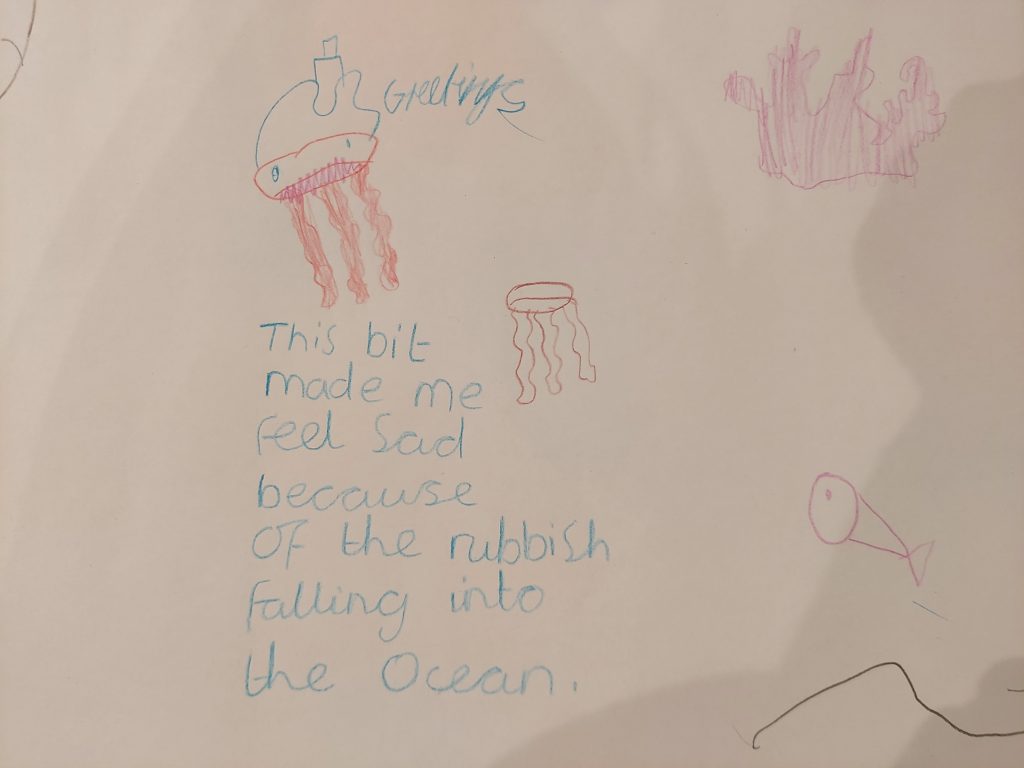 Greetings
This bit
made me
feel Sad
because
OF the rubbish
falling into
the Ocean.